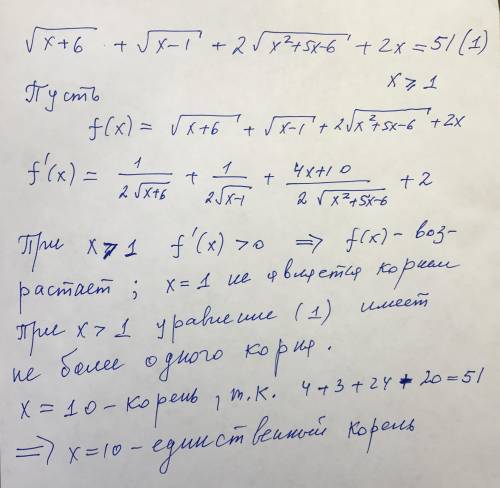 √(x+6) + √(x-1) + 2√(x²+5x-6) + 2x = 51 (1)
x ⩾ 1
Пусть
f(x) = √(x+6) + √(x-1) + 2√(x²+5x-6) + 2x
f'(x) = 1/(2√(x+6)) + 1/(2√(x-1)) + (4x+10)/(2√(x²+5x-6)) + 2
При x > 1 f'(x) > 0 ⇒ f(x) - воз-
растает; x = 1 не является корнем
При x > 1 уравнение (1) имеет
не более одного корня.
x = 10 - корень, т.к. 4 + 3 + 24 + 20 = 51
⇒ x = 10 - единственный корень